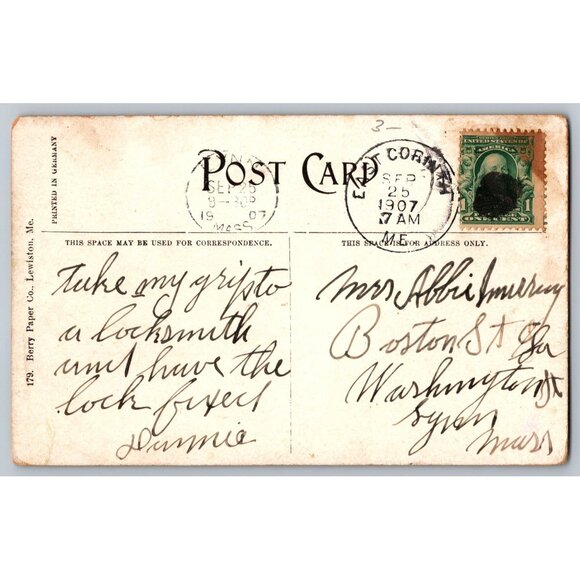 3-
POST CARD
EAST CORINTH
SEP
25
1907
7 AM
ME.
LYNN
SEP 25
8-30P
1907
MASS.
UNITED STATES OF AMERICA
1
ONE CENT
PRINTED IN GERMANY
179. Berry Paper Co., Lewiston, Me.
THIS SPACE MAY BE USED FOR CORRESPONDENCE.
THIS SPACE IS FOR ADDRESS ONLY.
take my grip to
a locksmith
and have the
lock fixed
Mrs Abbie Murray
Boston St
Washington St
Lynn
Mass